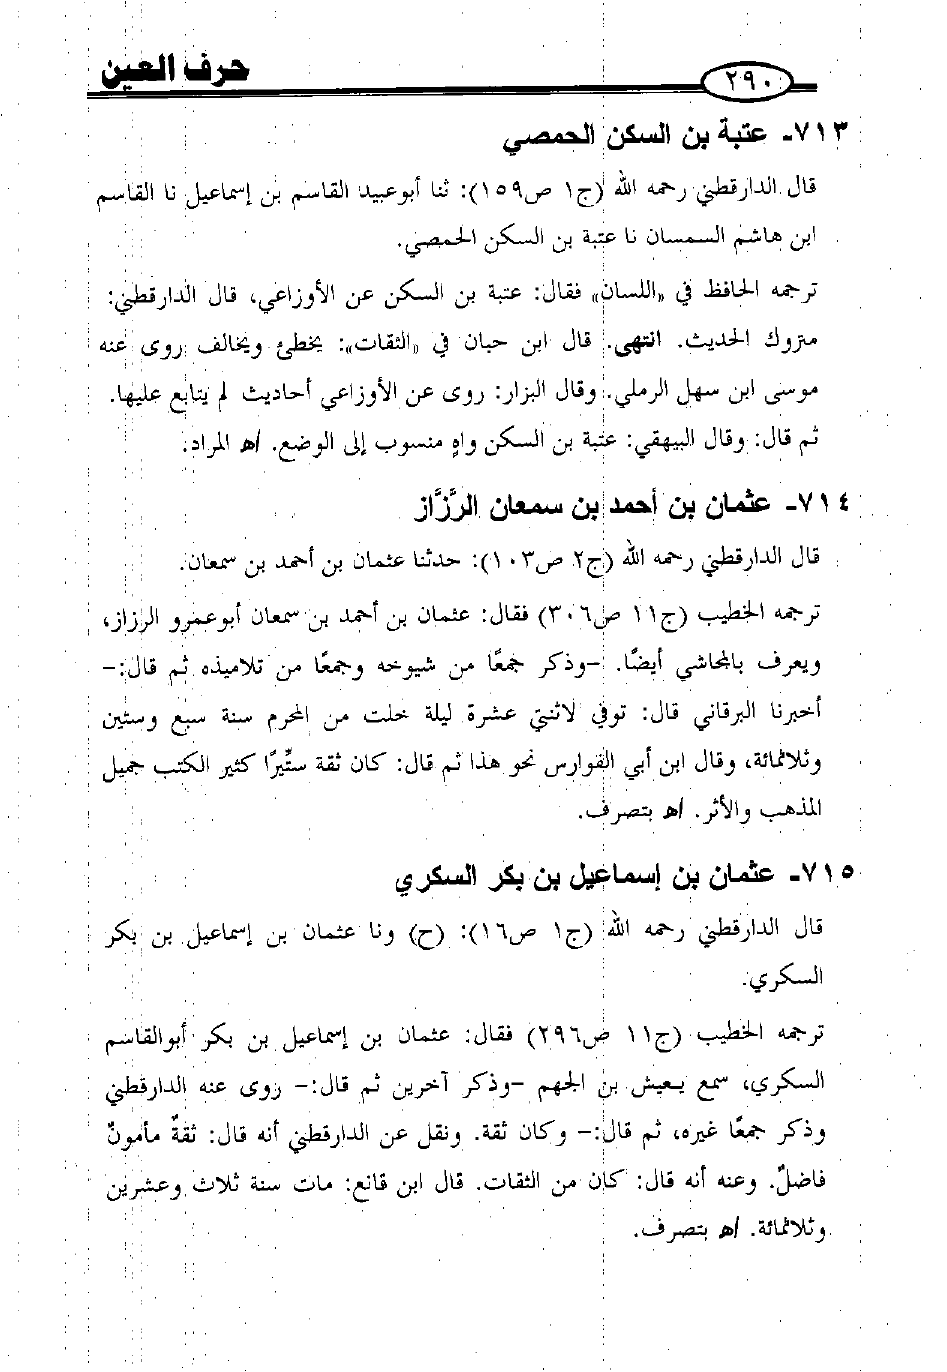 ٢٩٠ حرف العين
٧١٣- عتبة بن السكن الحمصي
قال الدارقطني رحمه الله (ج١ ص١٥٩): ثنا أبوعبيد القاسم بن إسماعيل نا القاسم
ابن هاشم السمسان نا عتبة بن السكن الحمصي.
ترجمه الحافظ في «اللسان» فقال: عتبة بن السكن عن الأوزاعي، قال الدارقطني:
متروك الحديث. انتهى. قال ابن حبان في «الثقات»: يخطئ ويخالف روى عنه
موسى ابن سهل الرملي. وقال البزار: روى عن الأوزاعي أحاديث لم يتابع عليها.
ثم قال: وقال البيهقي: عتبة بن السكن واهٍ منسوب إلى الوضع. اﻫ المراد.
٧١٤- عثمان بن أحمد بن سمعان الرَّزَّاز
قال الدارقطني رحمه الله (ج٢ ص١٠٣): حدثنا عثمان بن أحمد بن سمعان.
ترجمه الخطيب (ج١١ ص٣٠٦) فقال: عثمان بن أحمد بن سمعان أبوعمرو الرزاز،
ويعرف بالمحاشي أيضًا. -وذكر جمعًا من شيوخه وجمعًا من تلاميذه ثم قال:-
أخبرنا البرقاني قال: توفي لاثنتي عشرة ليلة خلت من المحرم سنة سبع وستين
وثلاثمائة، وقال ابن أبي الفوارس نحو هذا ثم قال: كان ثقة ستِّيرًا كثير الكتب جميل
المذهب والأثر. اﻫ بتصرف.
٧١٥- عثمان بن إسماعيل بن بكر السكري
قال الدارقطني رحمه الله (ج١ ص١٦): (ح) ونا عثمان بن إسماعيل بن بكر
السكري.
ترجمه الخطيب (ج١١ ص٢٩٦) فقال: عثمان بن إسماعيل بن بكر أبوالقاسم
السكري، سمع يعيش بن الجهم -وذكر آخرين ثم قال:- روى عنه الدارقطني
وذكر جمعًا غيره، ثم قال:- وكان ثقة. ونقل عن الدارقطني أنه قال: ثقةٌ مأمونٌ
فاضلٌ. وعنه أنه قال: كان من الثقات. قال ابن قانع: مات سنة ثلاث وعشرين
وثلاثمائة. اﻫ بتصرف.